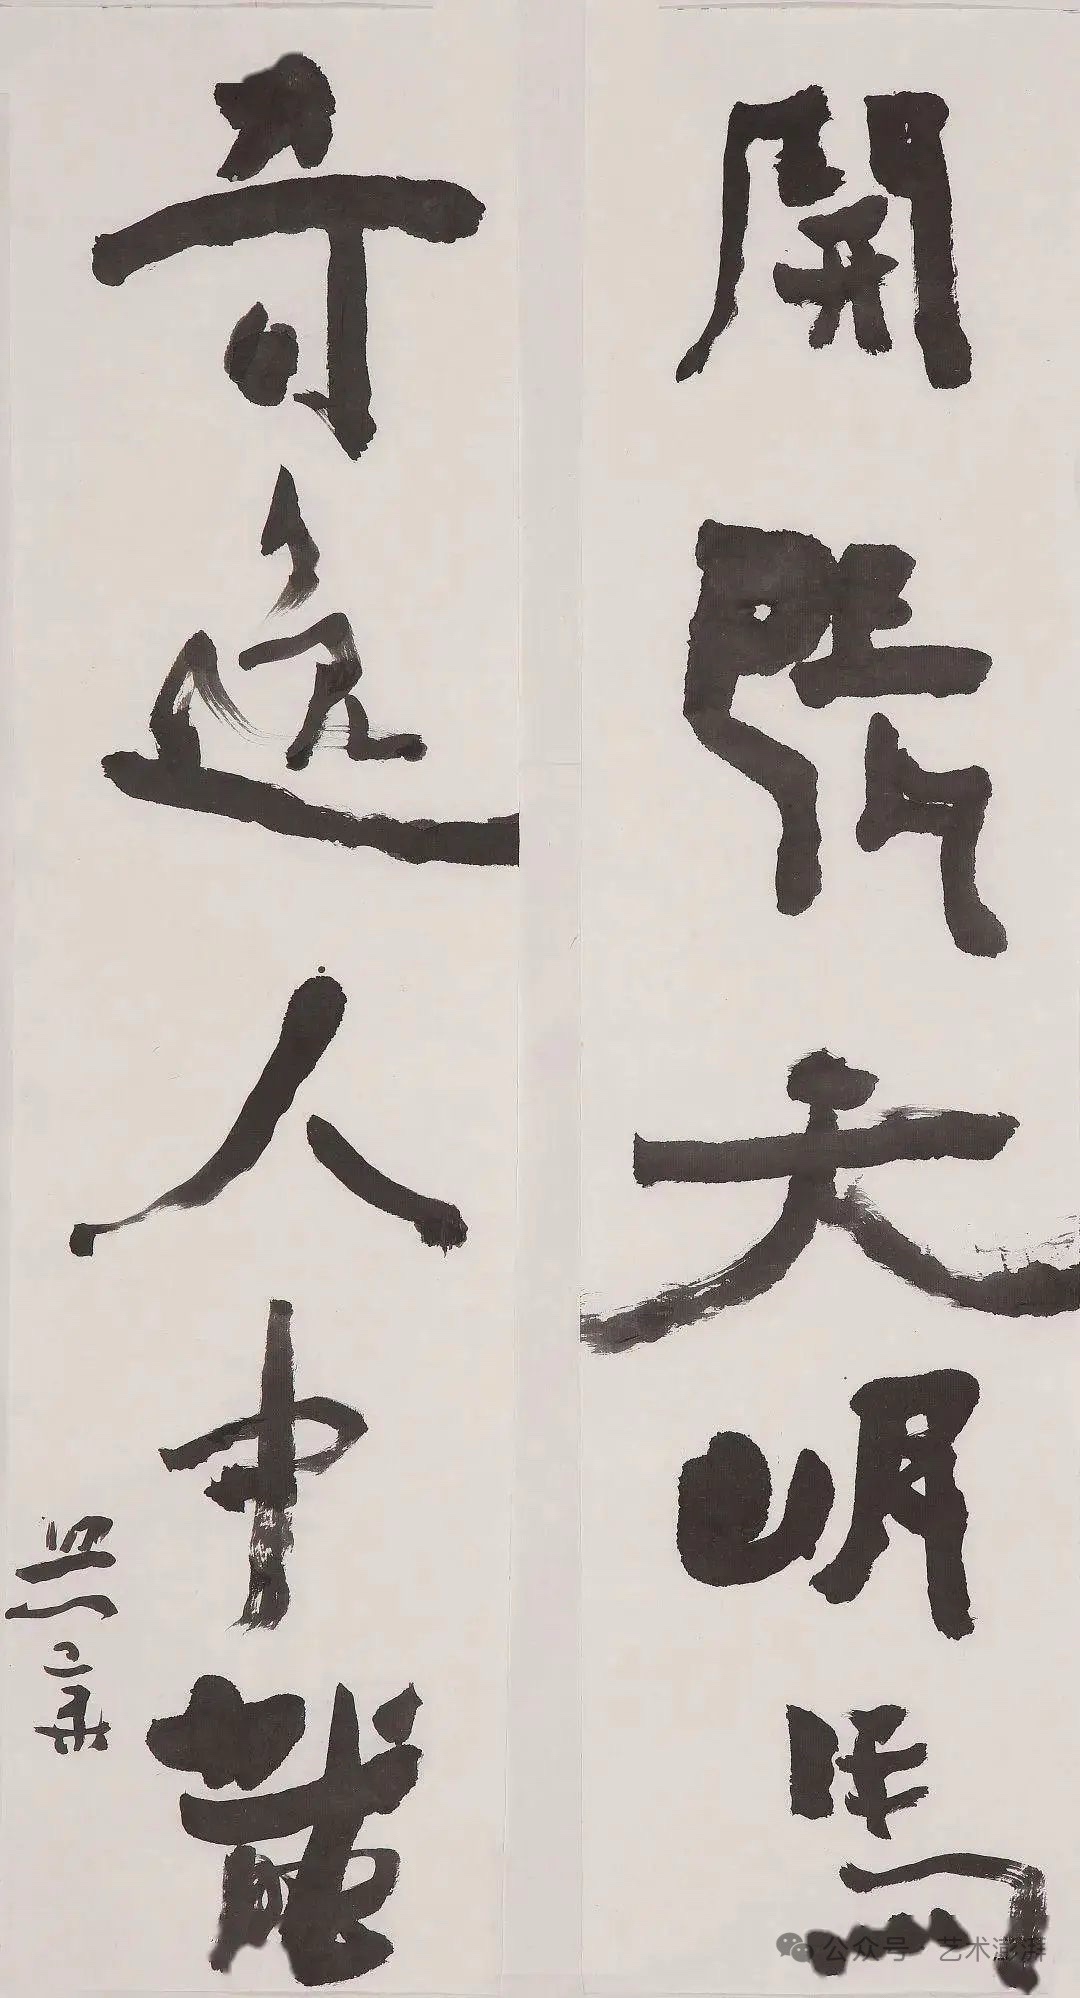 開張天岸馬
奇逸人中龍
公众号 · 艺术澎湃